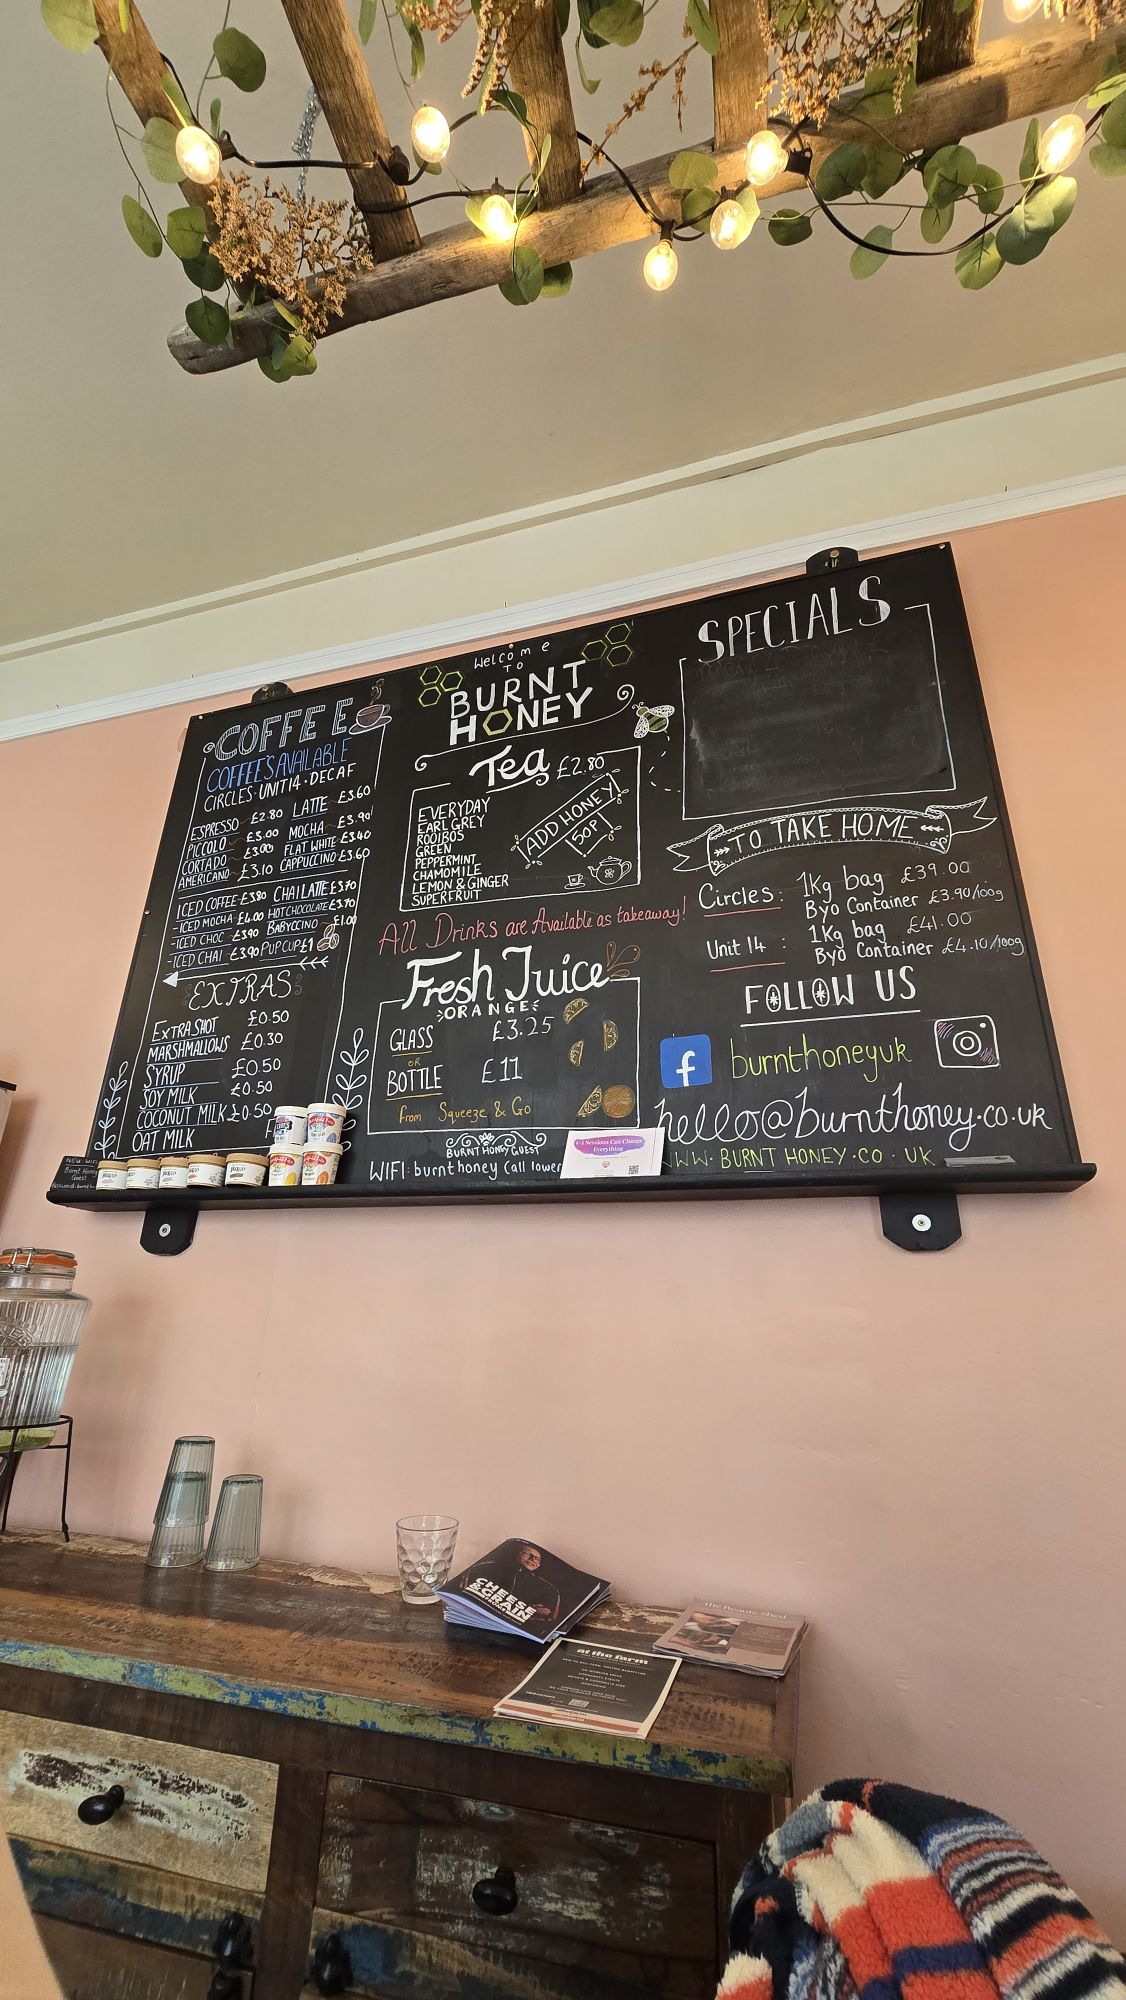 COFFEE
COFFEE'S AVAILABLE
CIRCLES · UNIT 14 · DECAF
ESPRESSO £2.80
PICCOLO £3.00
CORTADO £3.00
AMERICANO £3.10
LATTE £3.60
MOCHA £3.90
FLAT WHITE £3.40
CAPPUCCINO £3.60
ICED COFFEE £3.80
-ICED MOCHA £4.00
-ICED CHOC £3.90
-ICED CHAI £3.90
CHAI LATTE £3.70
HOT CHOCOLATE £3.70
BABYCCINO £1.00
PUPCUP £1
EXTRAS
EXTRA SHOT £0.50
MARSHMALLOWS £0.30
SYRUP £0.50
SOY MILK £0.50
COCONUT MILK £0.50
OAT MILK
Welcome
TO
BURNT
HONEY
Tea £2.80
EVERYDAY
EARL GREY
ROOIBOS
GREEN
PEPPERMINT
CHAMOMILE
LEMON & GINGER
SUPERFRUIT
ADD HONEY!
50P
All Drinks are Available as takeaway!
Fresh Juice
ORANGE
GLASS £3.25
OR
BOTTLE £11
from Squeeze & Go
BURNT HONEY GUEST
WIFI: burnthoney (all lower
SPECIALS
TO TAKE HOME
Circles: 1Kg bag £39.00
Byo Container £3.90/100g
Unit 14: 1Kg bag £41.00
Byo Container £4.10/100g
FOLLOW US
f burnthoneyuk
hello@burnthoney.co.uk
WWW.BURNTHONEY.CO.UK
Sessions Can Change
Everything
CHEESE
&GRAIN
at the farm
The Beauty Shed